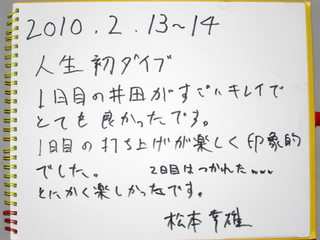 2010.2.13~14
人生初ダイブ
1日目の井田がすごいキレイで
とても良かったです。
1日目の打ち上げが楽しく印象的
でした。 2日目はつかれたwww
とにかく楽しかったです。
松本幸雄